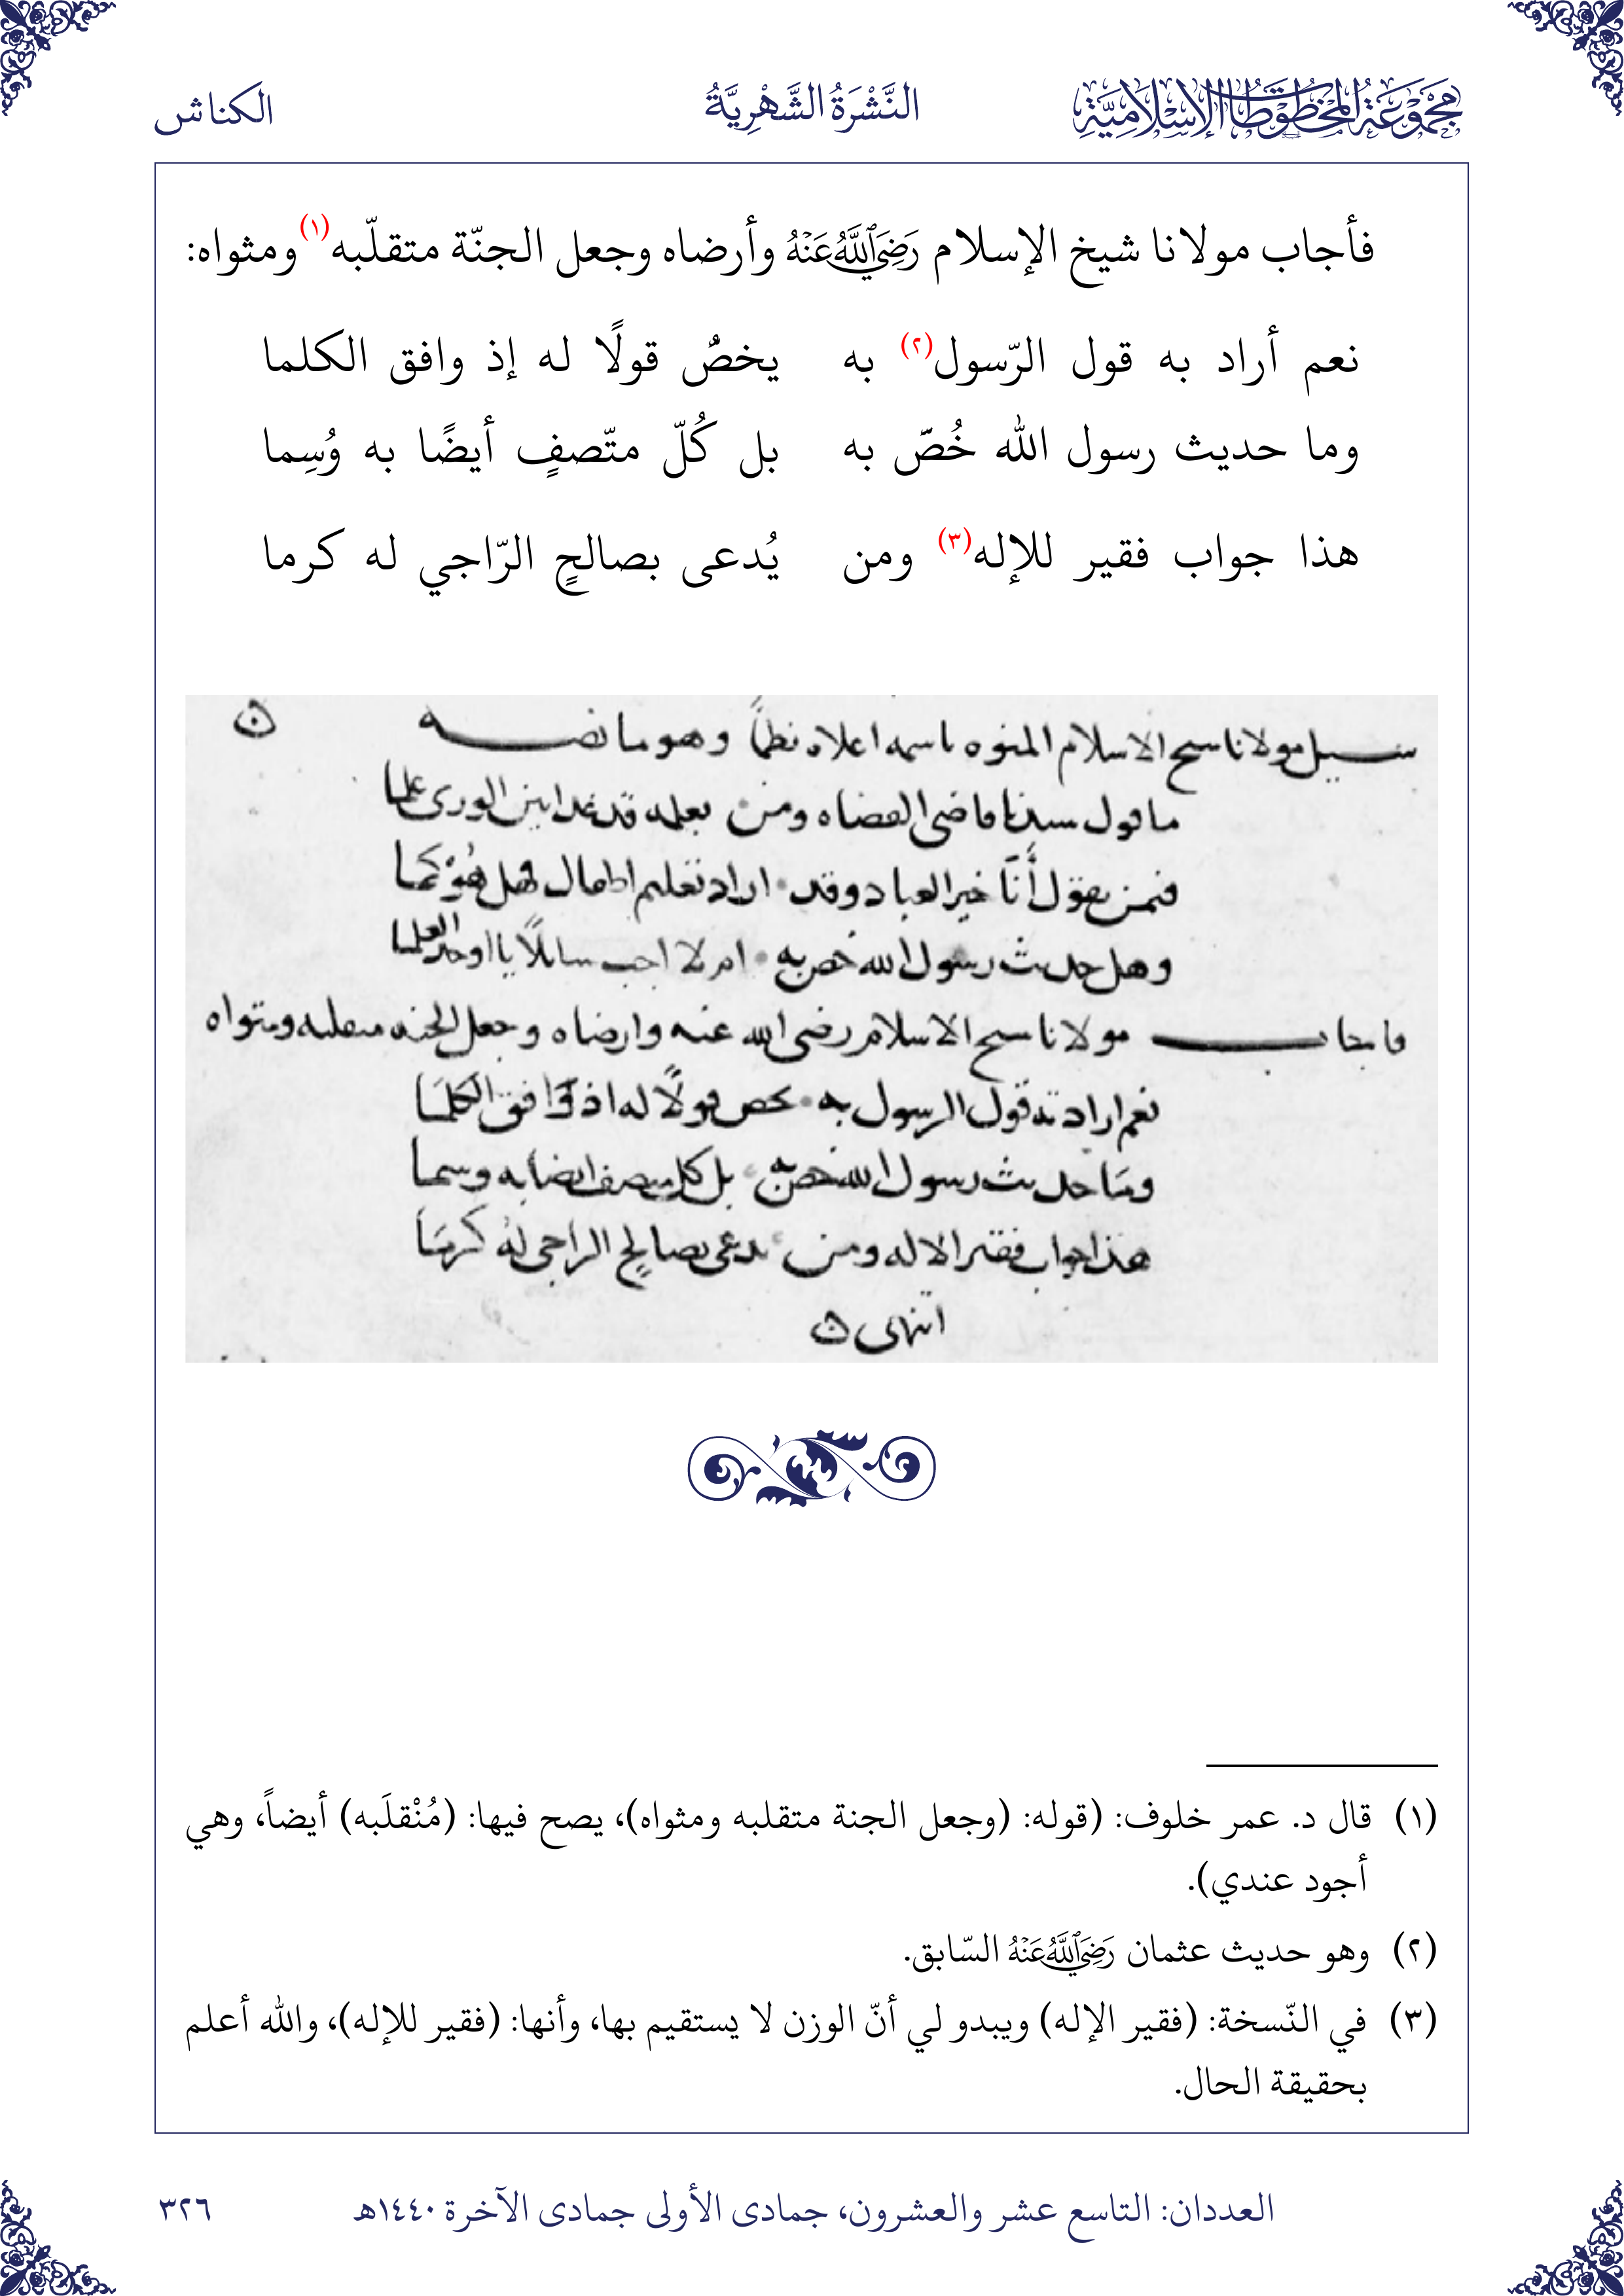 مَجْمُوعَةُ المَخْطُوطَاتِ الإِسْلَامِيَّةِ
النَّشْرَةُ الشَّهْرِيَّةُ
الكناش
فأجاب مولانا شيخ الإسلام رَضِيَ اللَّهُ عَنْهُ وأرضاه وجعل الجنّة متقلّبه(١) ومثواه:
نعم أراد به قول الرّسول(٢) به يخصُّ قولًا له إذ وافق الكلما
وما حديث رسول الله خُصّ به بل كُلّ متّصفٍ أيضًا به وُسِما
هذا جواب فقير للإله(٣) ومن يُدعى بصالحٍ الرّاجي له كرما
سيل مولانا سح الاسلام المنوه باسمه اعلاه نظمًا وهو ما نصه
ما قول سيدنا قاضى القضاه ومن بعلمه قد غدا بين الورى علما
فيمن يقول أنَا خير العباد وقد اراد تعليم اطفال فهل هُوْ كَمَا
وهل حديث رسول الله خص به ام لا اجب سائلًا يا اوحد العلما
فاجاب مولانا سح الاسلام رضى الله عنه وارضاه وجعل الجنه متقلبه ومثواه
نعم اراد به قول الرسول به يخص قولًا له اذ وافق الكَلمَا
ومَا حديث رسول الله خص به بل كل متصف ايضا به وسما
هذا جواب فقير الاله ومن يدعى بصالح الراجى له كرمَا
انتهى
(١) قال د. عمر خلوف: (قوله: (وجعل الجنة متقلبه ومثواه)، يصح فيها: (مُنْقلَبه) أيضاً، وهي
أجود عندي).
(٢) وهو حديث عثمان رَضِيَ اللَّهُ عَنْهُ السّابق.
(٣) في النّسخة: (فقير الإله) ويبدو لي أنّ الوزن لا يستقيم بها، وأنها: (فقير للإله)، والله أعلم
بحقيقة الحال.
العددان: التاسع عشر والعشرون، جمادى الأولى جمادى الآخرة ١٤٤٠هـ
٣٢٦